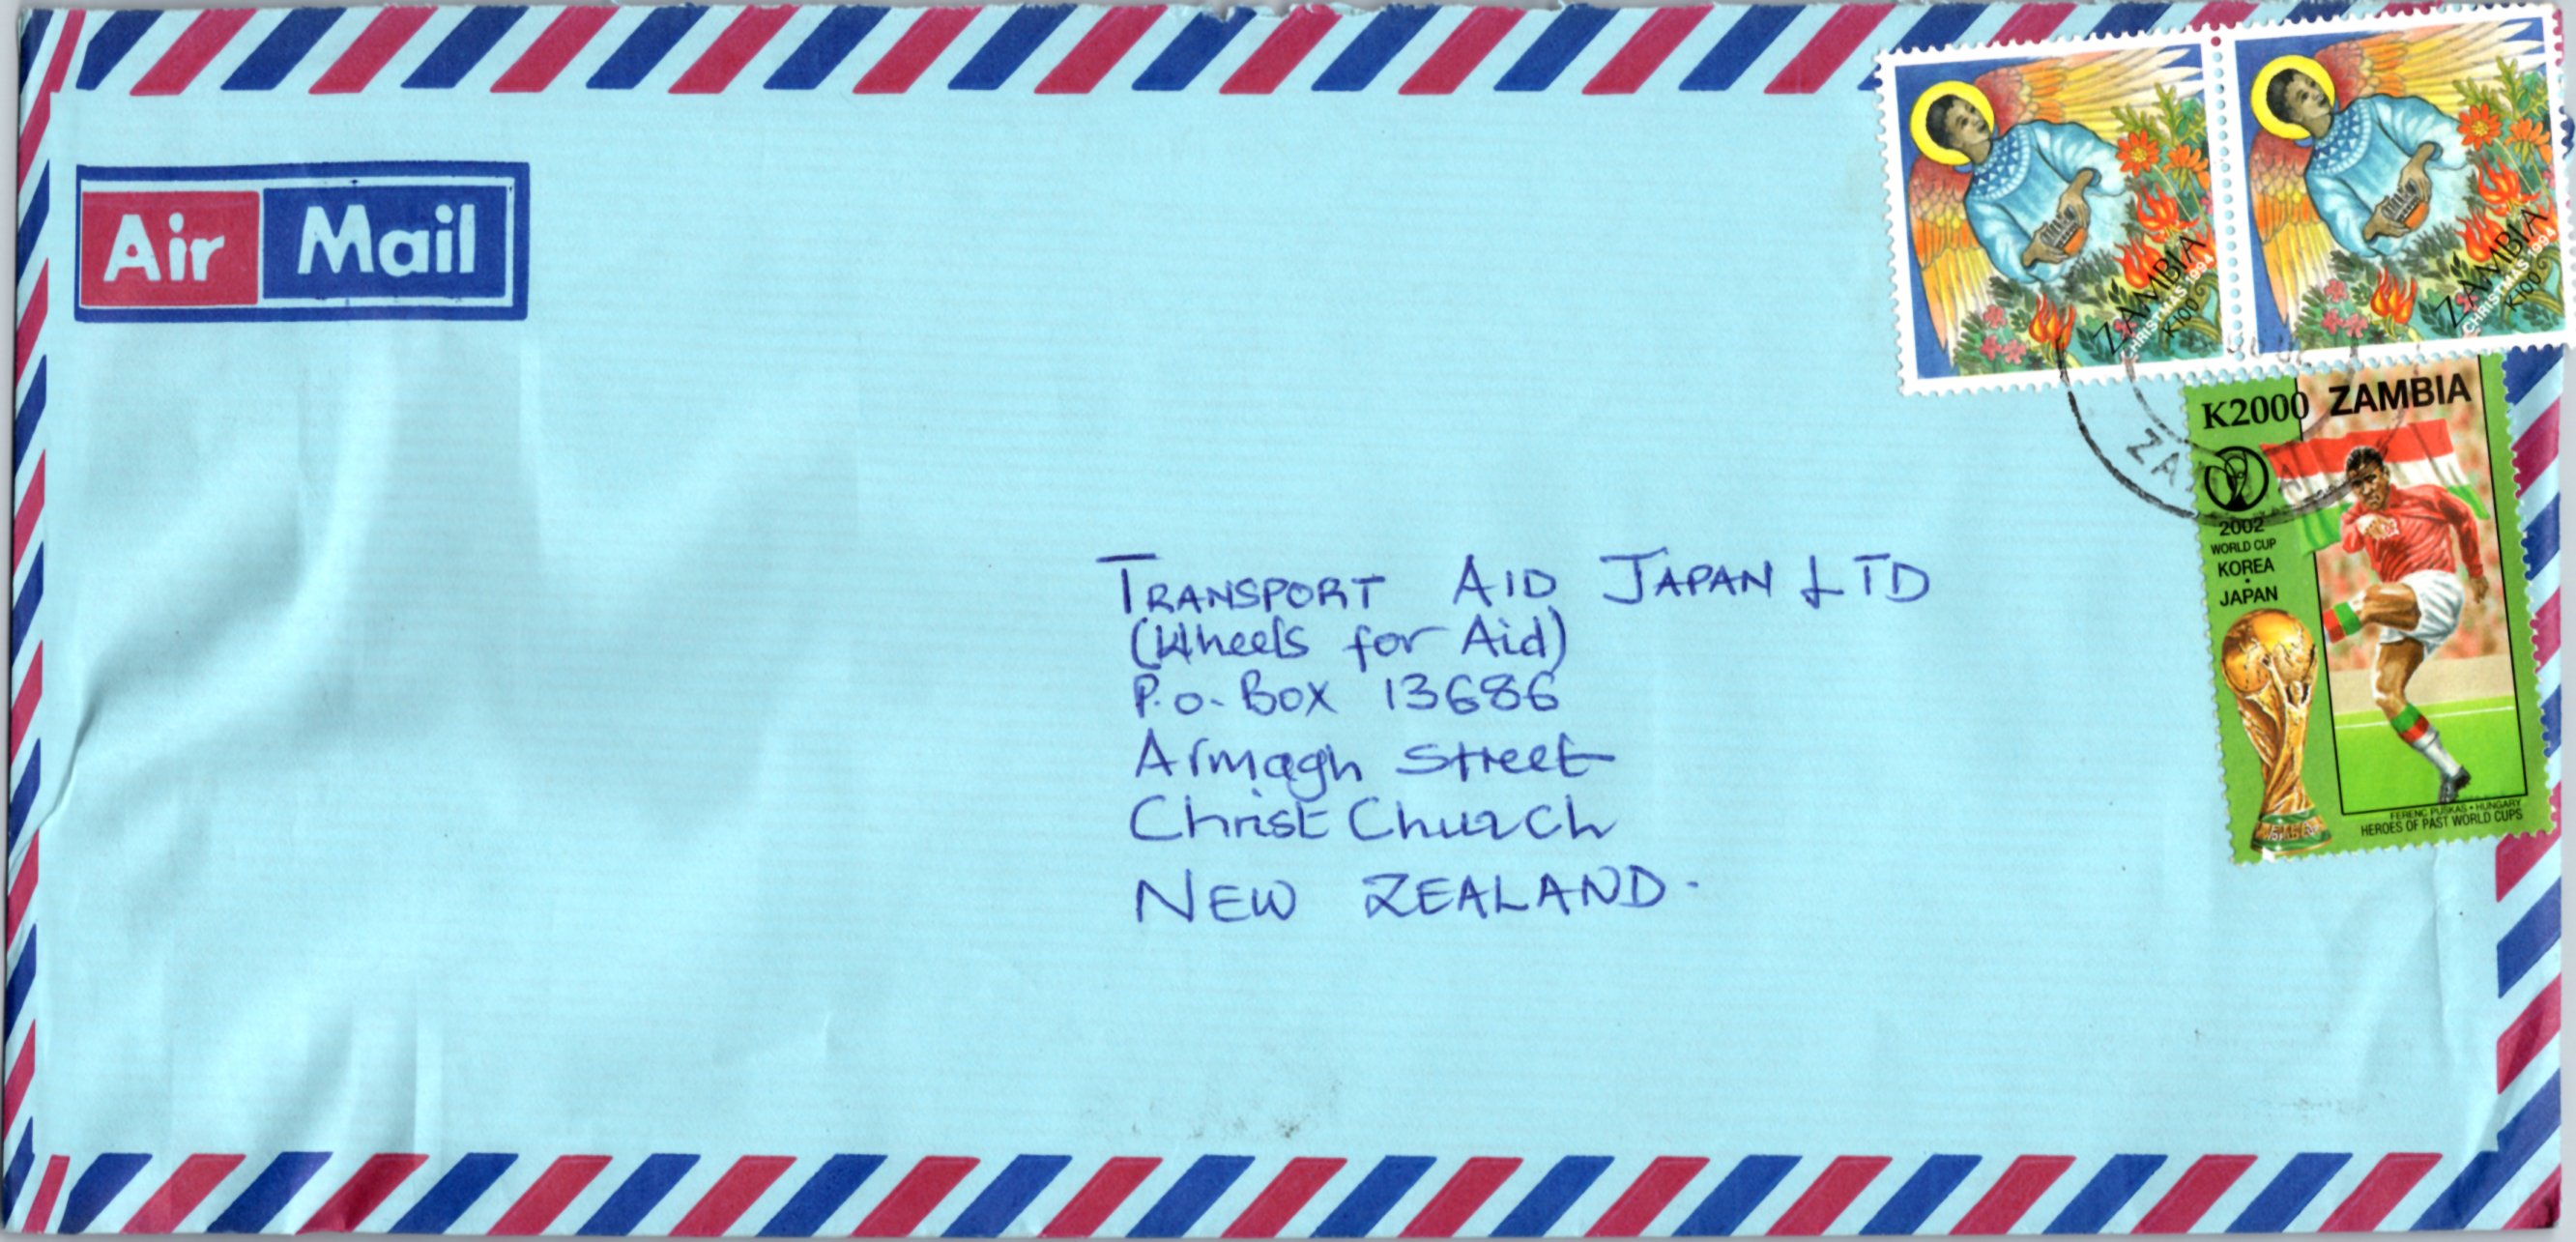 Air Mail
ZAMBIA
CHRISTMAS 1994
K100
ZAMBIA
CHRISTMAS 1994
K100
K2000 ZAMBIA
2002
WORLD CUP
KOREA
•
JAPAN
FERENC PUSKAS • HUNGARY
HEROES OF PAST WORLD CUPS
TRANSPORT AID JAPAN LTD
(Wheels for Aid)
P.O. Box 13686
Armagh Street
Christ Church
NEW ZEALAND.